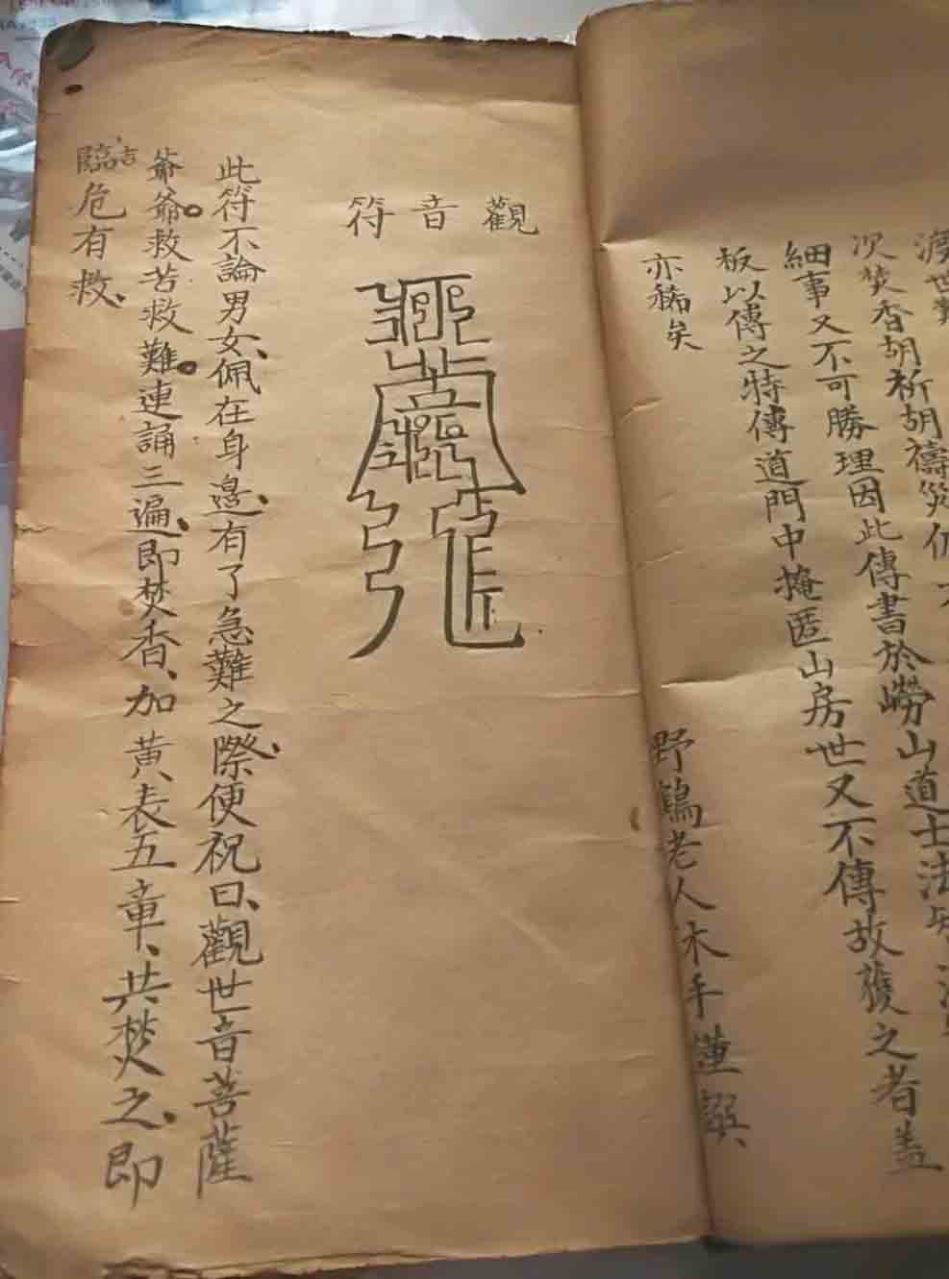 次焚香胡祈胡禱災
細事又不可勝理因此傳書於嶗山道士法
板以傳之特傳道門中掩匿山房世又不傳故獲之者盖
亦稀矣
野鶴老人木手謹撰
觀音符
此符不論男女、佩在身邊、有了急難之際、便祝曰、觀世音菩薩
爺爺。救苦救難。連誦三遍、即焚香、加黄表五章、共焚之、即
臨危有救、
吉